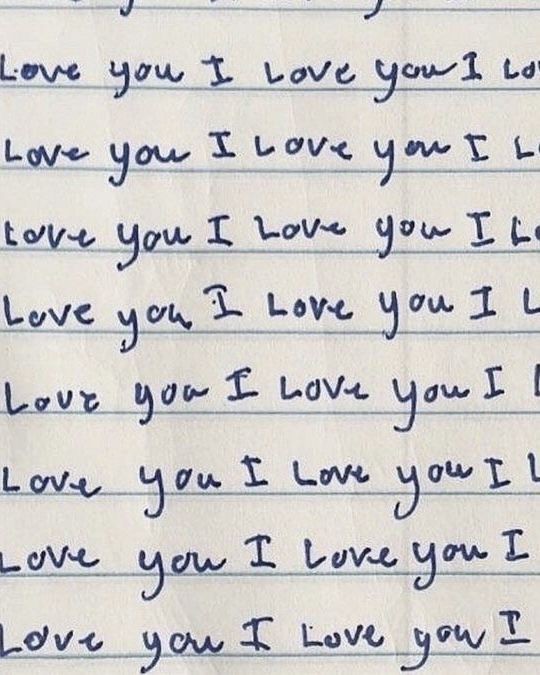 Love you I Love you I Lo
Love you I Love you I L
Love you I Love you I Lo
Love you I Love you I L
Love you I Love you I
Love you I Love you I L
Love you I Love you I
Love you I Love you I